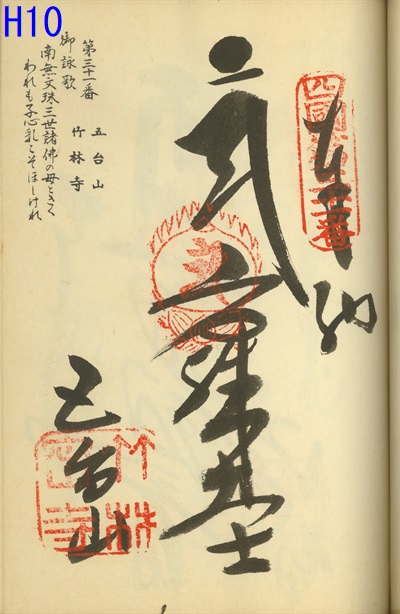 H10
四國第三十一番
奉納
文殊菩薩
五台山
竹林寺
第三十一番
五台山
竹林寺
御詠歌
南無文珠三世諸佛の母ときく
われも子心乳こそほしけれ